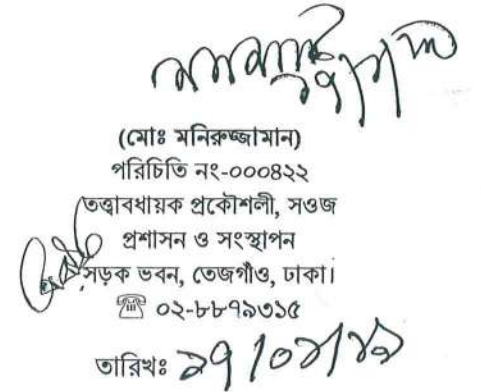 (মোঃ মনিরুজ্জামান)
পরিচিতি নং-০০০৪২২
তত্ত্বাবধায়ক প্রকৌশলী, সওজ
প্রশাসন ও সংস্থাপন
সড়ক ভবন, তেজগাঁও, ঢাকা।
☎ ০২-৮৮৭৯৩১৫
তারিখঃ